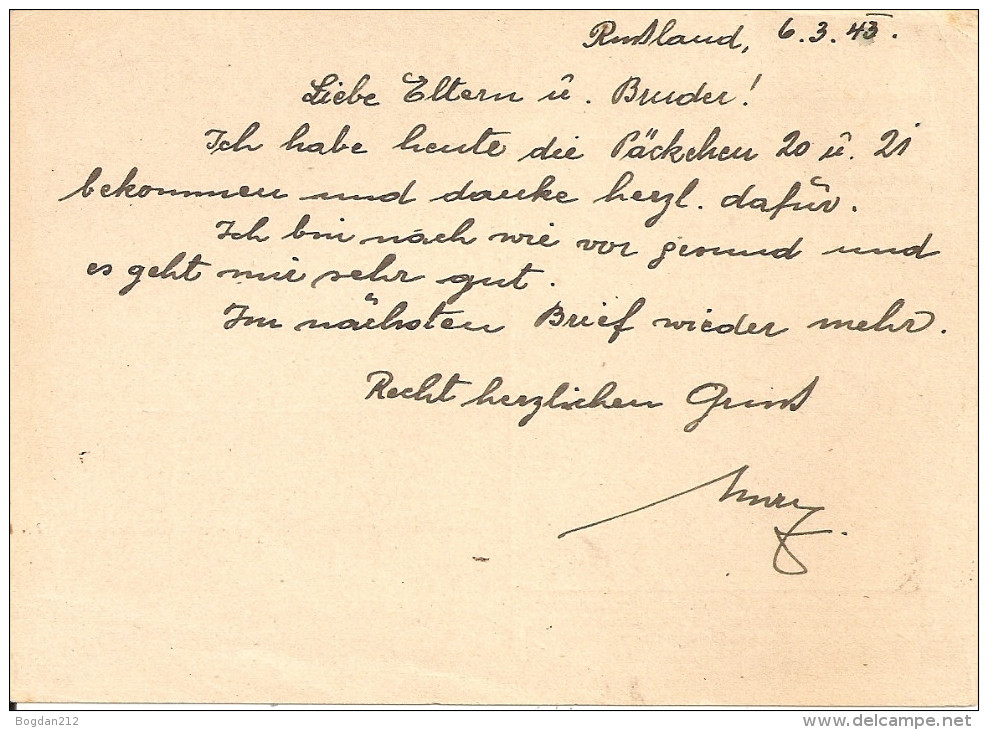 Rußland, 6.3.43.
Liebe Eltern u. Bruder!
Ich habe heute die Päckchen 20 u. 21
bekommen und danke herzl. dafür.
Ich bin nach wie vor gesund und
es geht mir sehr gut.
Im nächsten Brief wieder mehr.
Recht herzlichen Gruß
Bogdan212
delcampe.net